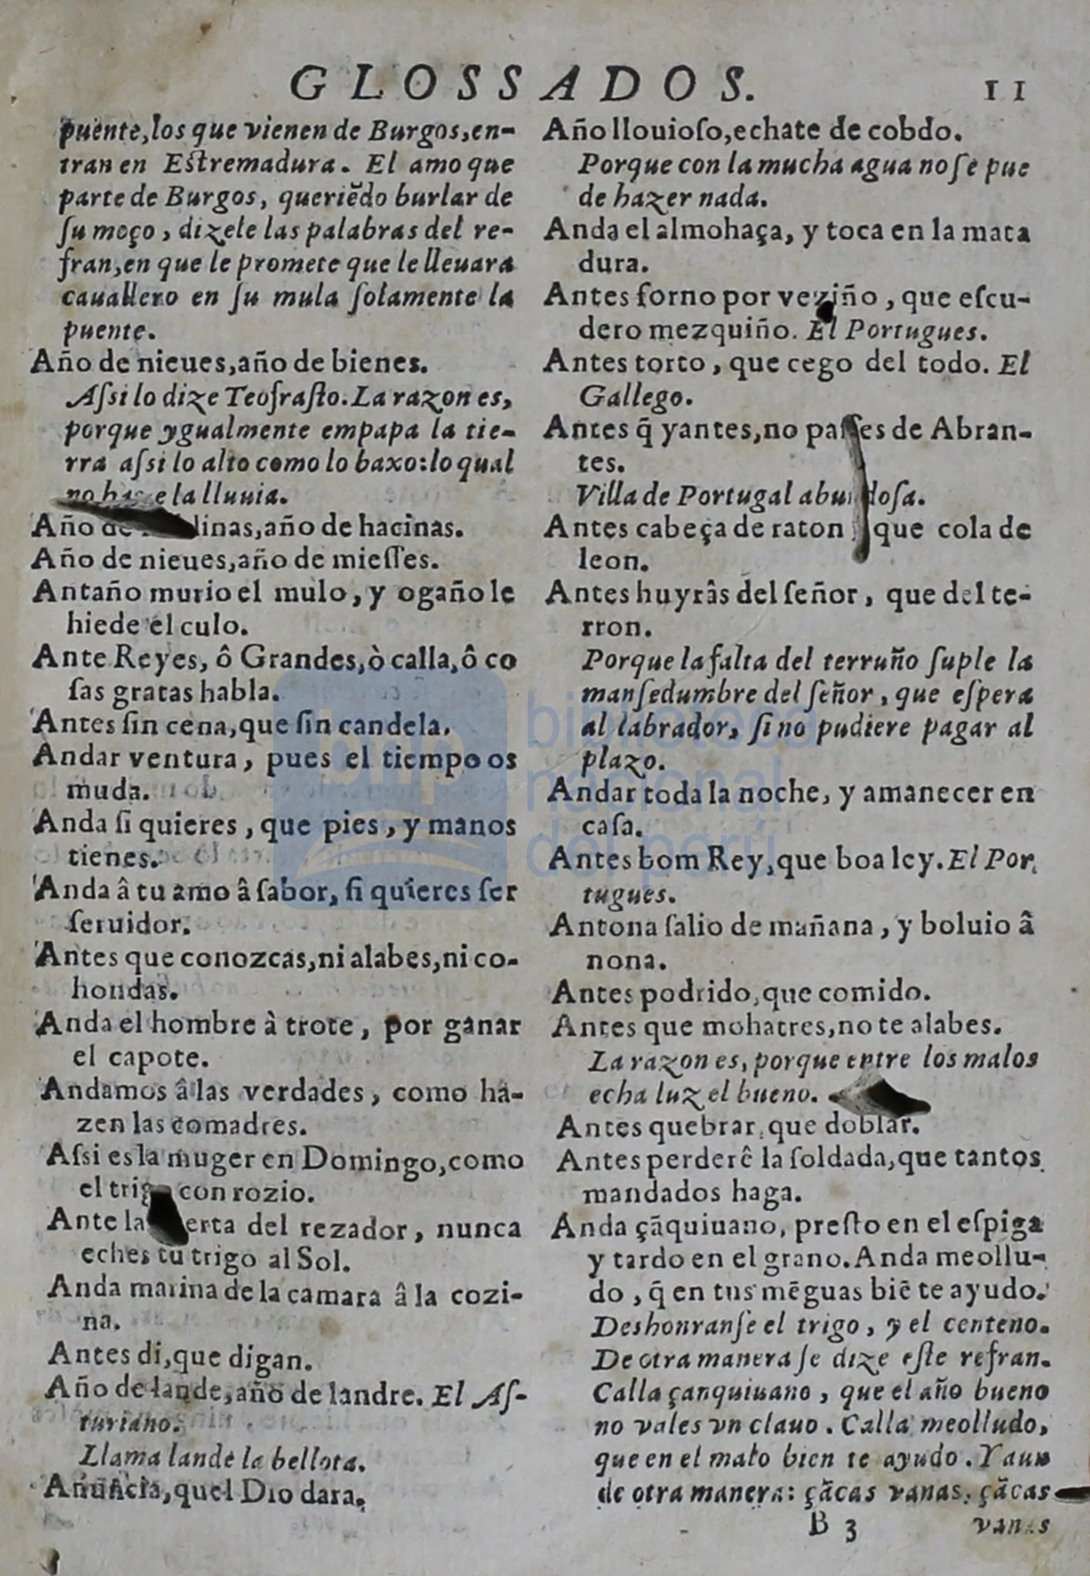 GLOSSADOS. 11
puente,los que vienen de Burgos,en-
tran en Estremadura. El amo que
parte de Burgos, queriẽdo burlar de
ſu moço, dizele las palabras del re-
fran,en que le promete que le lleuara
cauallero en ſu mula ſolamente la
puente.
Año de nieues,año de bienes.
Aſsi lo dize Teofraſto. La razon es,
porque ygualmente empapa la tie-
rra aſsi lo alto como lo baxo:lo qual
no la lluuia.
Año año de hacinas.
Año de nieues,año de mieſſes.
Antaño murio el mulo, y ogaño le
hiede el culo.
Ante Reyes, ô Grandes,ò calla,ô co
ſas gratas habla.
Antes ſin cena,que ſin candela.
Andar ventura, pues el tiempo os
muda.
Anda ſi quieres, que pies, y manos
tienes.
Anda â tu amo â ſabor, ſi quieres ſer
ſeruidor.
Antes que conozcas,ni alabes,ni co-
hondas.
Anda el hombre à trote, por ganar
el capote.
Andamos â las verdades, como ha-
zen las comadres.
Aſsi es la muger en Domingo,como
el con rozio.
Ante la del rezador, nunca
eches tu trigo al Sol.
Anda marina de la camara â la cozi-
na.
Antes di,que digan.
Año de lande,año de landre. El Aſ-
turiano.
Llama lande la bellota.
Anuncia,quel Dio dara.
Año llouioſo,echate de cobdo.
Porque con la mucha agua no ſe pue
de hazer nada.
Anda el almohaça, y toca en la mata
dura.
Antes forno por veziño, que eſcu-
dero mezquiño. El Portugues.
Antes torto, que cego del todo. El
Gallego.
Antes q̃ yantes,no paſſes de Abran-
tes.
Villa de Portugal abundoſa.
Antes cabeça de raton que cola de
leon.
Antes huyrâs del ſeñor, que del te-
rron.
Porque la falta del terruño ſuple la
manſedumbre del ſeñor, que eſpera
al labrador, ſi no pudiere pagar al
plazo.
Andar toda la noche, y amanecer en
caſa.
Antes bom Rey,que boa ley. El Por
tugues.
Antona ſalio de mañana, y boluio â
nona.
Antes podrido,que comido.
Antes que mohatres,no te alabes.
La razon es, porque entre los malos
echa luz el bueno.
Antes quebrar,que doblar.
Antes perderê la ſoldada,que tantos
mandados haga.
Anda çãquiuano, preſto en el eſpiga
y tardo en el grano. Anda meollu-
do, q̃ en tus mẽguas biẽ te ayudo.
Deshonranſe el trigo, y el centeno.
De otra manera ſe dize eſte refran.
Calla çanquiuano, que el año bueno
no vales vn clauo. Calla meolludo,
que en el malo bien te ayudo. Y aun
de otra manera: çãcas vanas, çãcas
B 3 vanas
biblioteca
nacional
del perú
bnp